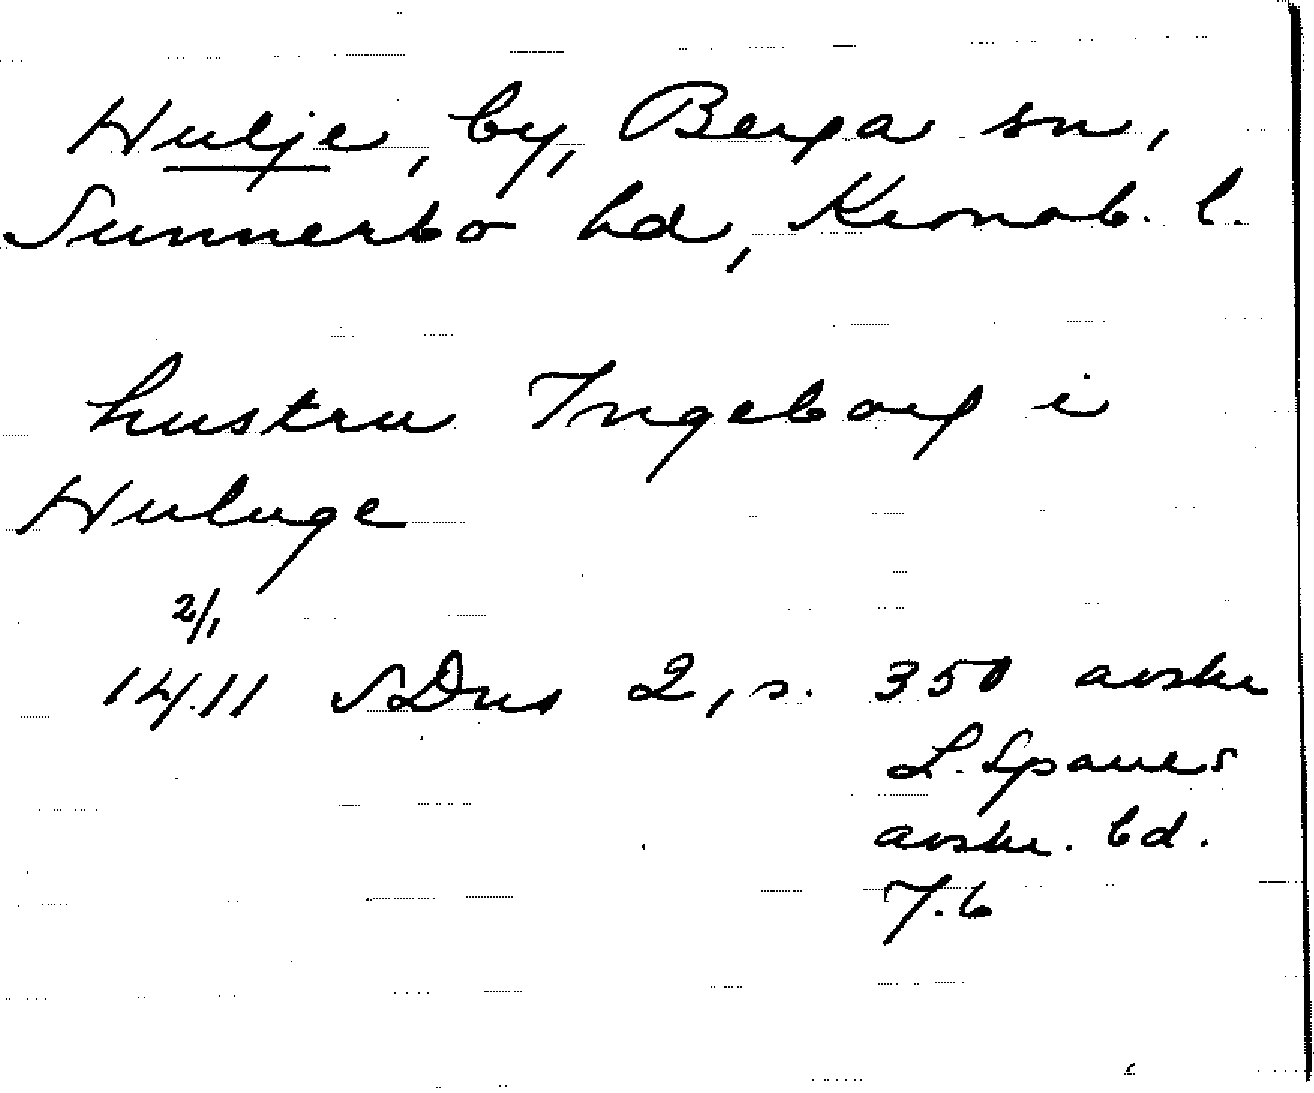 Hulje, by, Berga sn,
Sunnerbo hd, Kronob. l.
hustru Ingeborg i
Huluge
2/1
1411 SDns 2, s. 350 avskr
L. Spares
avskr. bd.
7.6